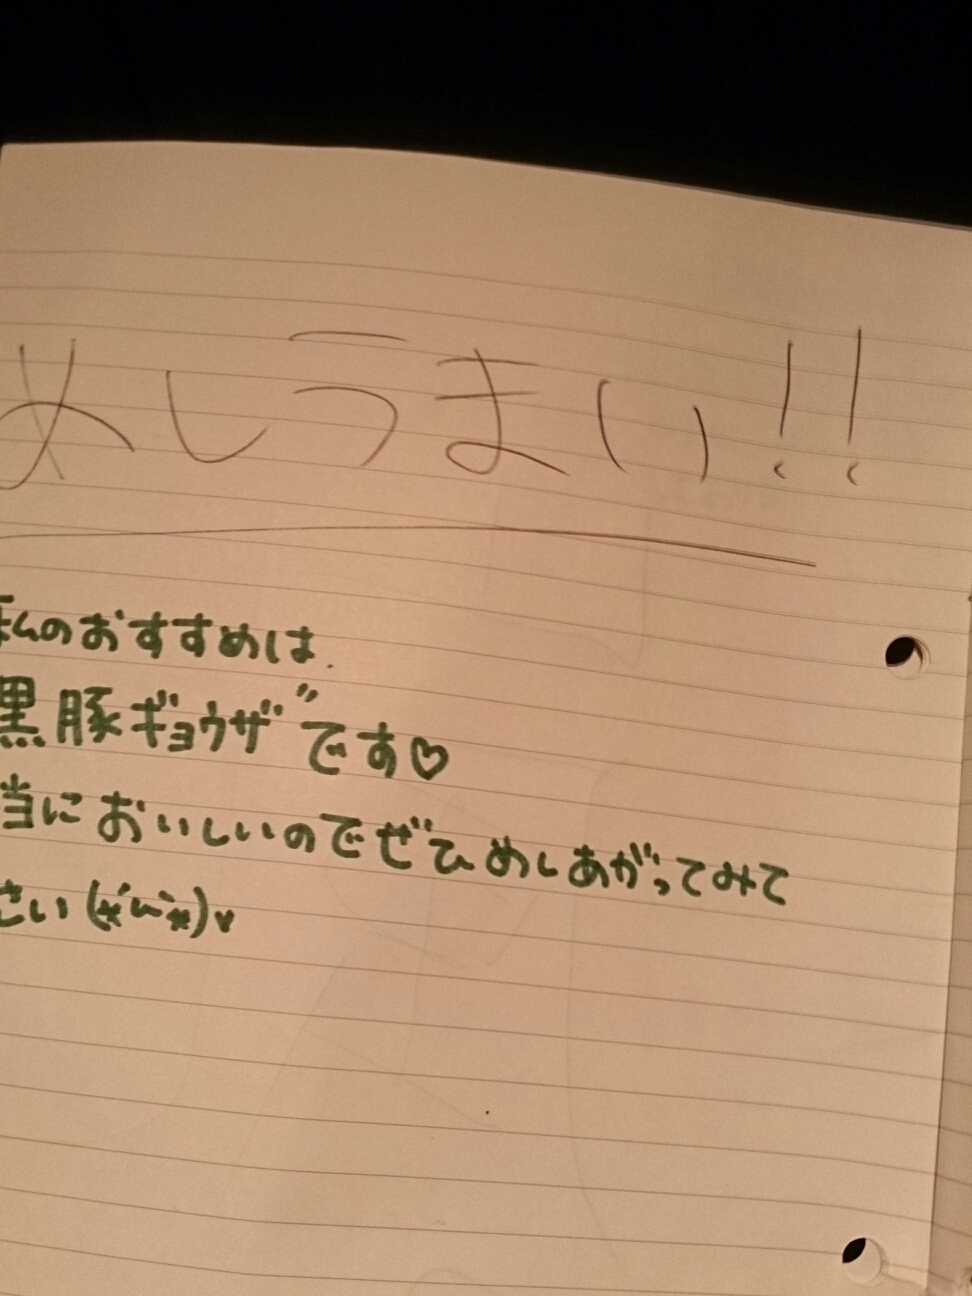 めしうまい!!
私のおすすめは.
黒豚ギョウザ”です♡
当においしいのでぜひめしあがってみて
さい(*´~`*)♥